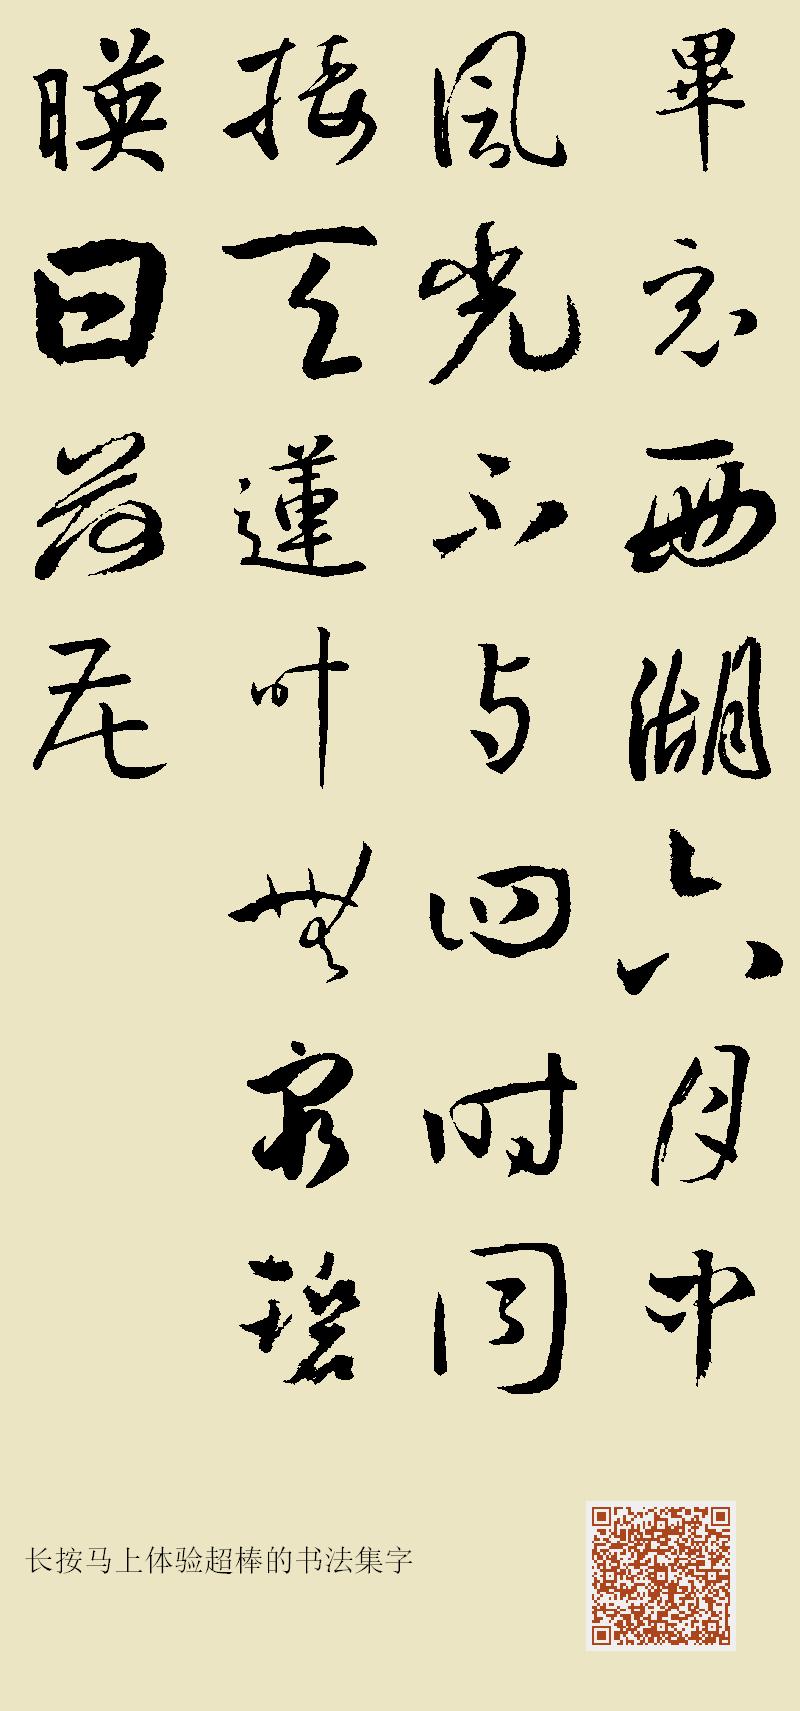 畢竟西湖六月中
風光不与四时同
接天蓮叶無窮碧
暎日荷花
长按马上体验超棒的书法集字